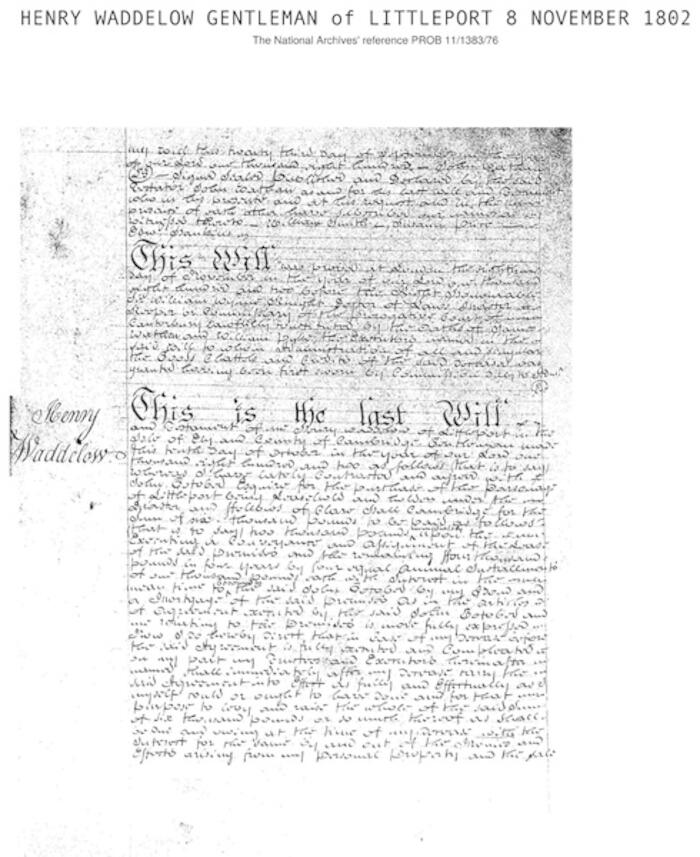 HENRY WADDELOW GENTLEMAN of LITTLEPORT 8 NOVEMBER 1802
The National Archives' reference PROB 11/1383/76
my Will this twenty third Day of September in the
of our Lord one thousand eight hundred
Signed Sealed Published and Declared by the said
Testator John Wathan as and for his last Will and Testament
who in his presence and at his request and in the
presence of each other have subscribed our names as
Witnesses thereto William Susanna Price
This Will was proved at London the eighteenth
day of November in the year of our Lord one thousand
eight hundred and two before the Right Honourable
Sir William Wynne Knight Doctor of Laws Master
Keeper or Commissary of the Prerogative Court of
Canterbury lawfully constituted by the Oaths of James
Wathan and William the Executors named in the
said Will to whom administration of all and singular
the Goods Chattels and Credits of the said deceased was
granted having been first sworn by Commission duly to
Henry
Waddelow
This is the last Will
and Testament of me Henry Waddelow of Littleport in the
Isle of Ely and County of Cambridge Gentleman made
this tenth Day of October in the year of our Lord one
thousand eight hundred and two as follows that is to say
Whereas I have lately Contracted and agreed with
John October Esquire for the purchase of the Parsonage
of Littleport being Leasehold and holden under the
Master and Fellows of Clare Hall Cambridge for the
Sum of six thousand pounds to be paid as follows
that is to say two thousand pounds upon the
Executing a Conveyance and Assignment of the Lease
of the said premises and the remaining ffour thousand
pounds in four years by four equal annual Installments
of one thousand pounds each with Interest in the
mean time to the said John October by my Bond and
a Mortgage of the said premises as in the articles
of Agreement executed by the said John October and
me relating to the Premises is more fully expressed
Now I do hereby direct that in case of my decease before
the said Agreement is fully executed and Compleated
on my part my Trustees and Executors hereinafter
named shall immediately after my decease carry the
said Agreement into Effect as fully and Effectually as I
myself could or ought to have done and for that
purpose to levy and raise the whole of the said Sum
of six thousand pounds or so much thereof as shall
be due and owing at the time of my decease with the
Interest for the same by and out of the Monies and
Effects arising from my personal Property and the sale